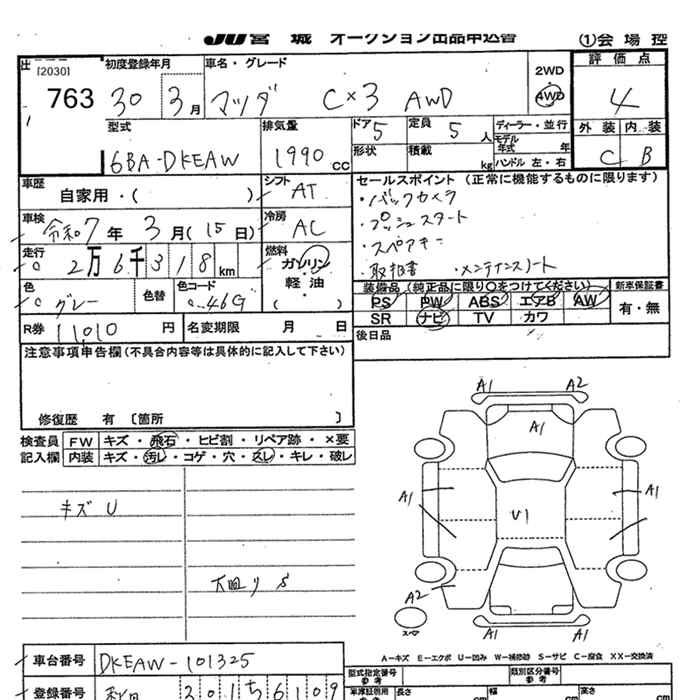 JU 宮城 オークション出品申込書 (1)会場控
[2030]
763
初度登録年月
30 3月
車名・グレード
マツダ CX3 AWD
2WD
4WD
評価点
4
外装 内装
C B
型式
6BA-DKEAW
排気量
1990 CC
ドア 5
形状
定員 5 人
積載 kg
ディーラー・並行
モデル年式 年
ハンドル 左・右
車歴
自家用・( )
シフト
AT
セールスポイント (正常に機能するものに限ります)
・バックカメラ
・プッシュスタート
・スペアキー
・取説書 ・メンテナンスノート
車検
令和7年 3月(15日)
冷房
AC
走行
2万6千318km
燃料
ガソリン・
軽油
( )
色
グレー
色替
色コード
46G
装備品 (純正品に限り○をつけてください)
PS PW ABS エアB AW
SR ナビ TV カワ
新車保証書
有・無
R券 11010 円 名変期限 月 日
後日品
注意事項申告欄(不具合内容等は具体的に記入して下さい)
修復歴 有 〔箇所 〕
検査員記入欄
FW キズ・飛石・ヒビ割・リペア跡・×要
内装 キズ・汚レ・コゲ・穴・スレ・キレ・破レ
キズ U
A1 A2
A1
A1
A1
U1
A2
スペア
A1 A1
A-キズ E-エクボ U-凹み W-補修跡 S-サビ C-腐食 XX-交換済
車台番号 DKEAW-101325
型式指定番号
参考
類別区分番号
参考
登録番号
301 5 6109
車庫証明用
参考
長さ cm
幅 cm
高さ cm